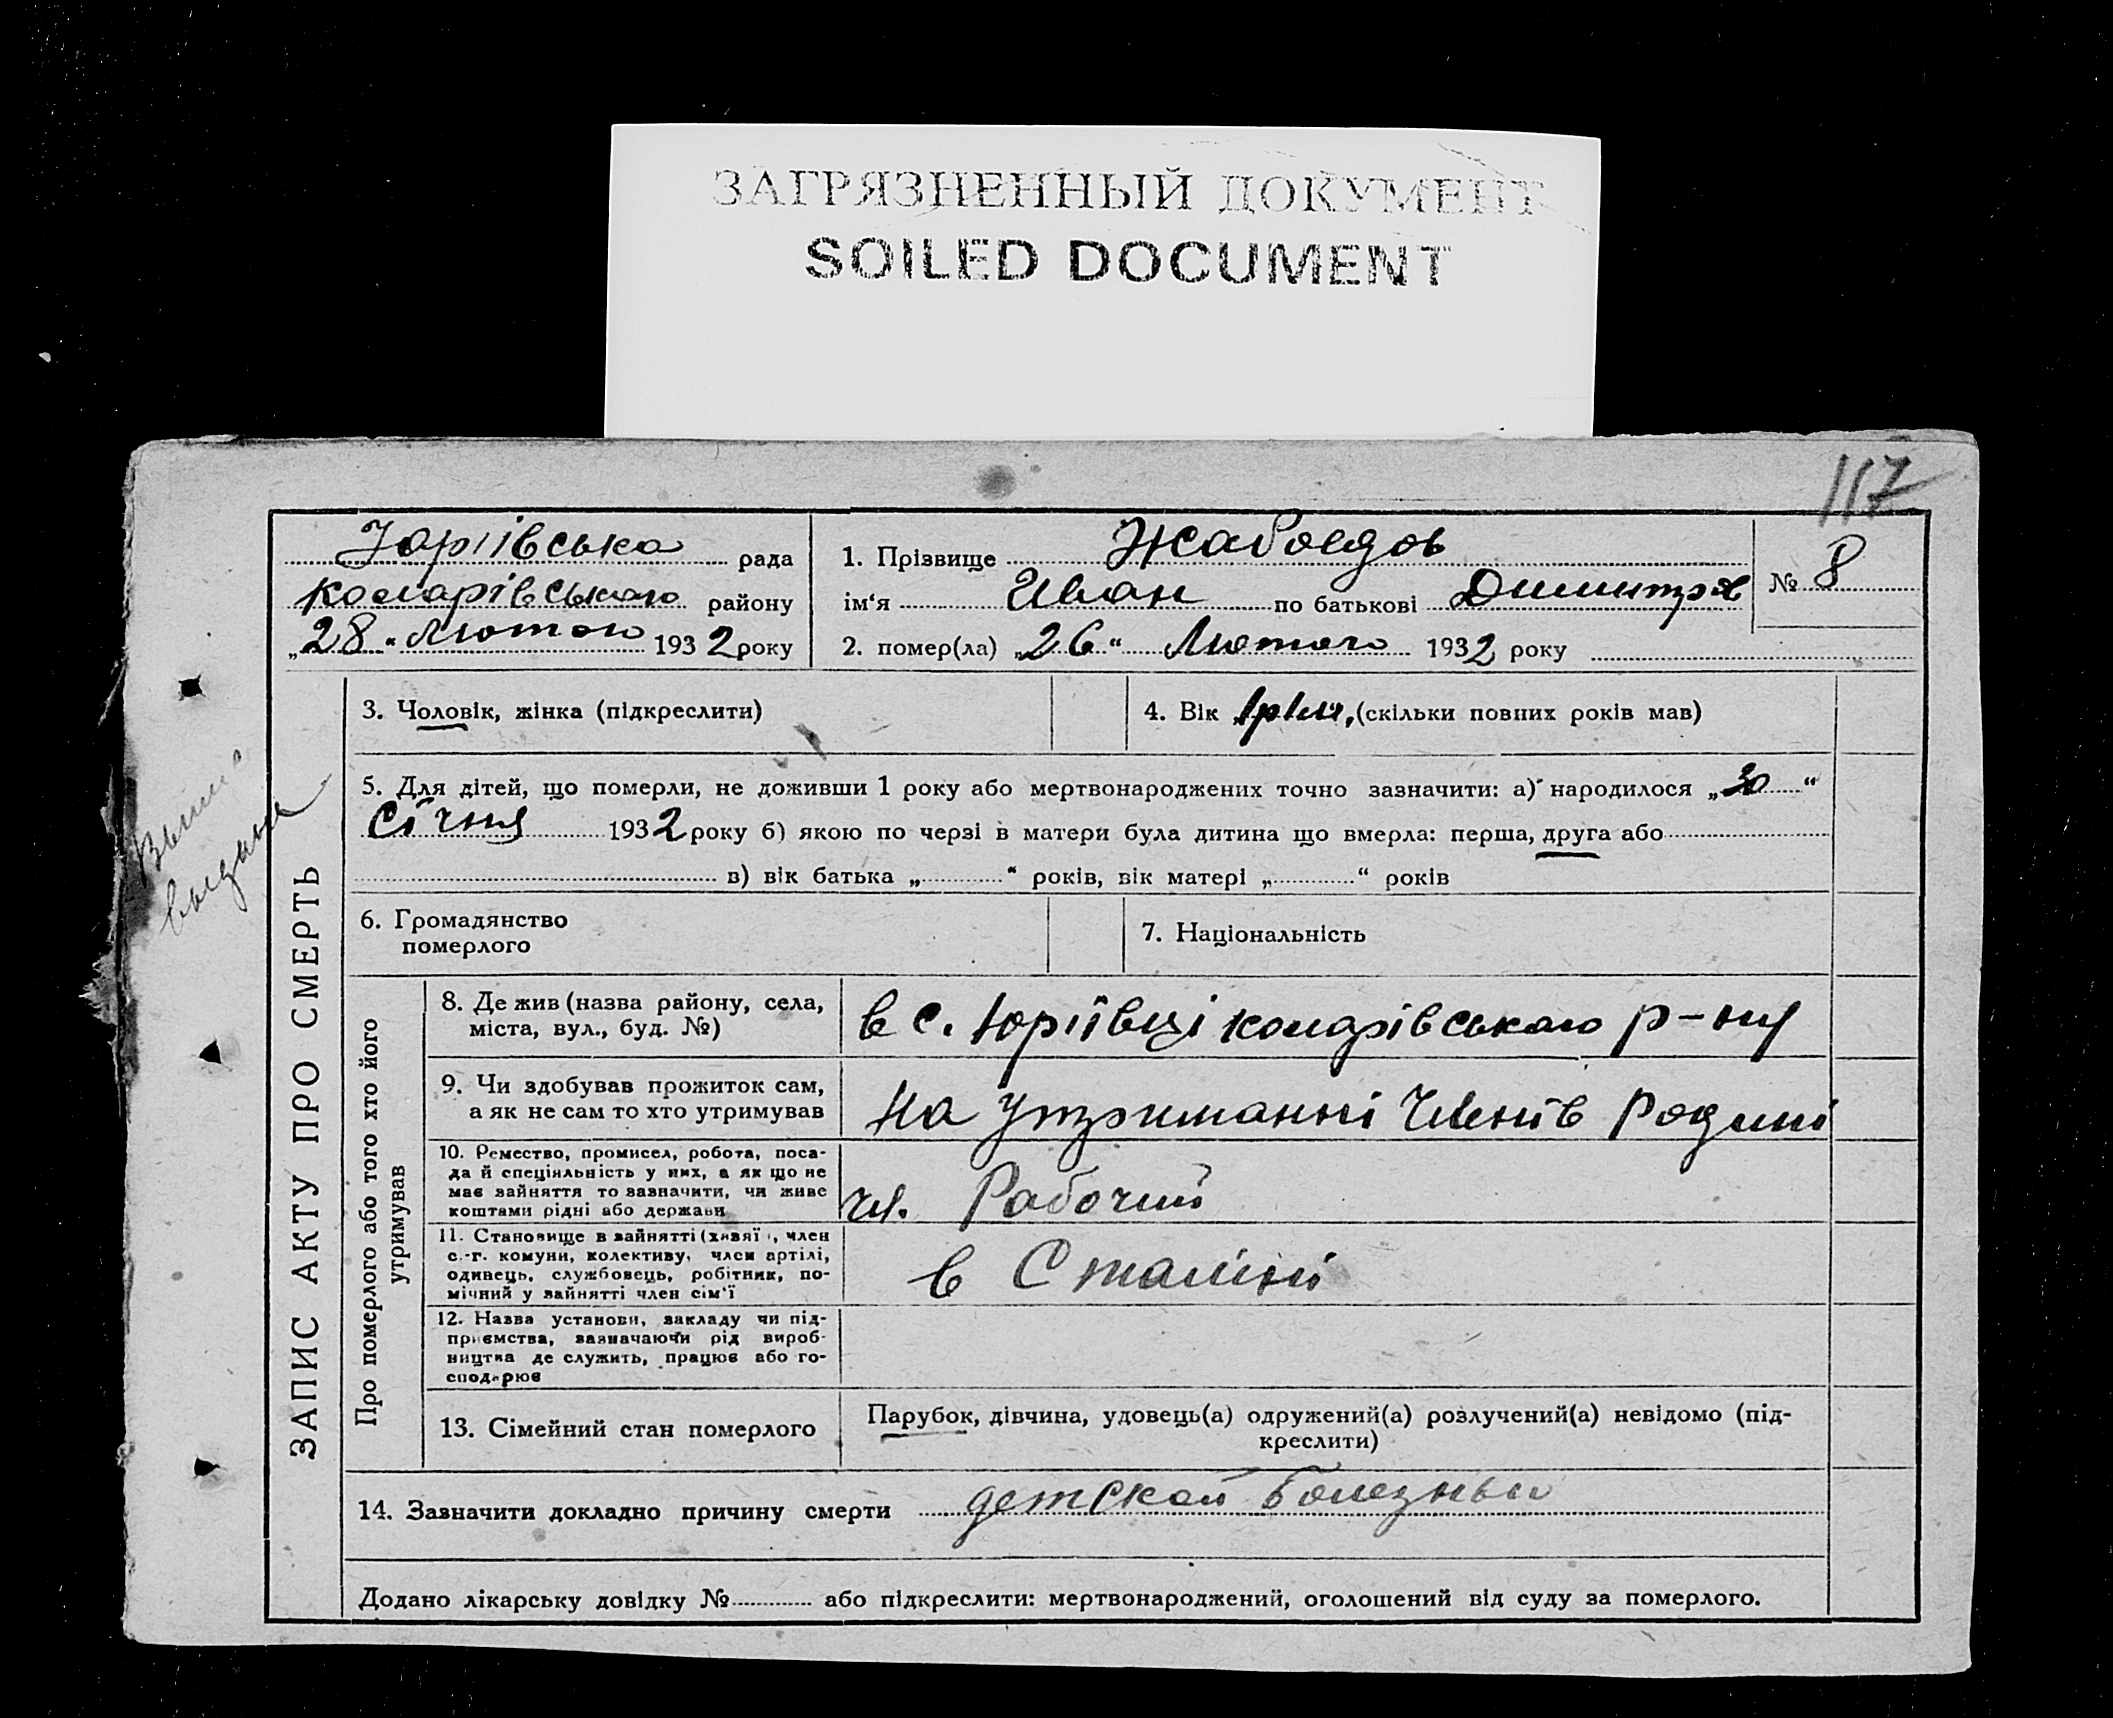 ЗАГРЯЗНЕННЫЙ ДОКУМЕНТ
SOILED DOCUMENT
117
Юріівська рада
комарівського району
„28“ Лютого 1932 року
1. Прізвище Жабоедов
ім‘я Иван по батькові Димитров
2. помер(ла) „26“ Лютого 1932 року
№ 8
ЗАПИС АКТУ ПРО СМЕРТЬ
3. Чоловік, жінка (підкреслити)
4. Вік (скільки повних років мав)
5. Для дітей, що померли, не доживши 1 року або мертвонароджених точно зазначити: а) народилося „30“
Січня 1932 року б) якою по черзі в матери була дитина що вмерла: перша, друга або
в) вік батька „ “ років, вік матері „ “ років
6. Громадянство
померлого
7. Національність
Про померлого або того хто його
утримував
8. Де жив (назва району, села,
міста, вул., буд. №)
в с. Юріївці комарівського р-ну
9. Чи здобував прожиток сам,
а як не сам то хто утримував
На утриманні Членів Родині
10. Ремество, промисел, робота, поса-
да й спеціяльність у них, а як що не
має зайняття то зазначити, чи живе
коштами рідні або держави
чл. Рабочий
11. Становище в зайнятті (хазяї , член
с.-г. комуни, колективу, член артілі,
одинець, службовець, робітник, по-
мічний у зайнятті член сім‘ї
в Сталіні
12. Назва установи, закладу чи під-
приємства, зазначаючи рід вироб-
ництва де служить, працює або го-
сподарює
13. Сімейний стан померлого
Парубок, дівчина, удовець(а) одружений(а) розлучений(а) невідомо (під-
креслити)
14. Зазначити докладно причину смерти детской болезньи
Додано лікарську довідку № або підкреслити: мертвонароджений, оголошений від суду за померлого.